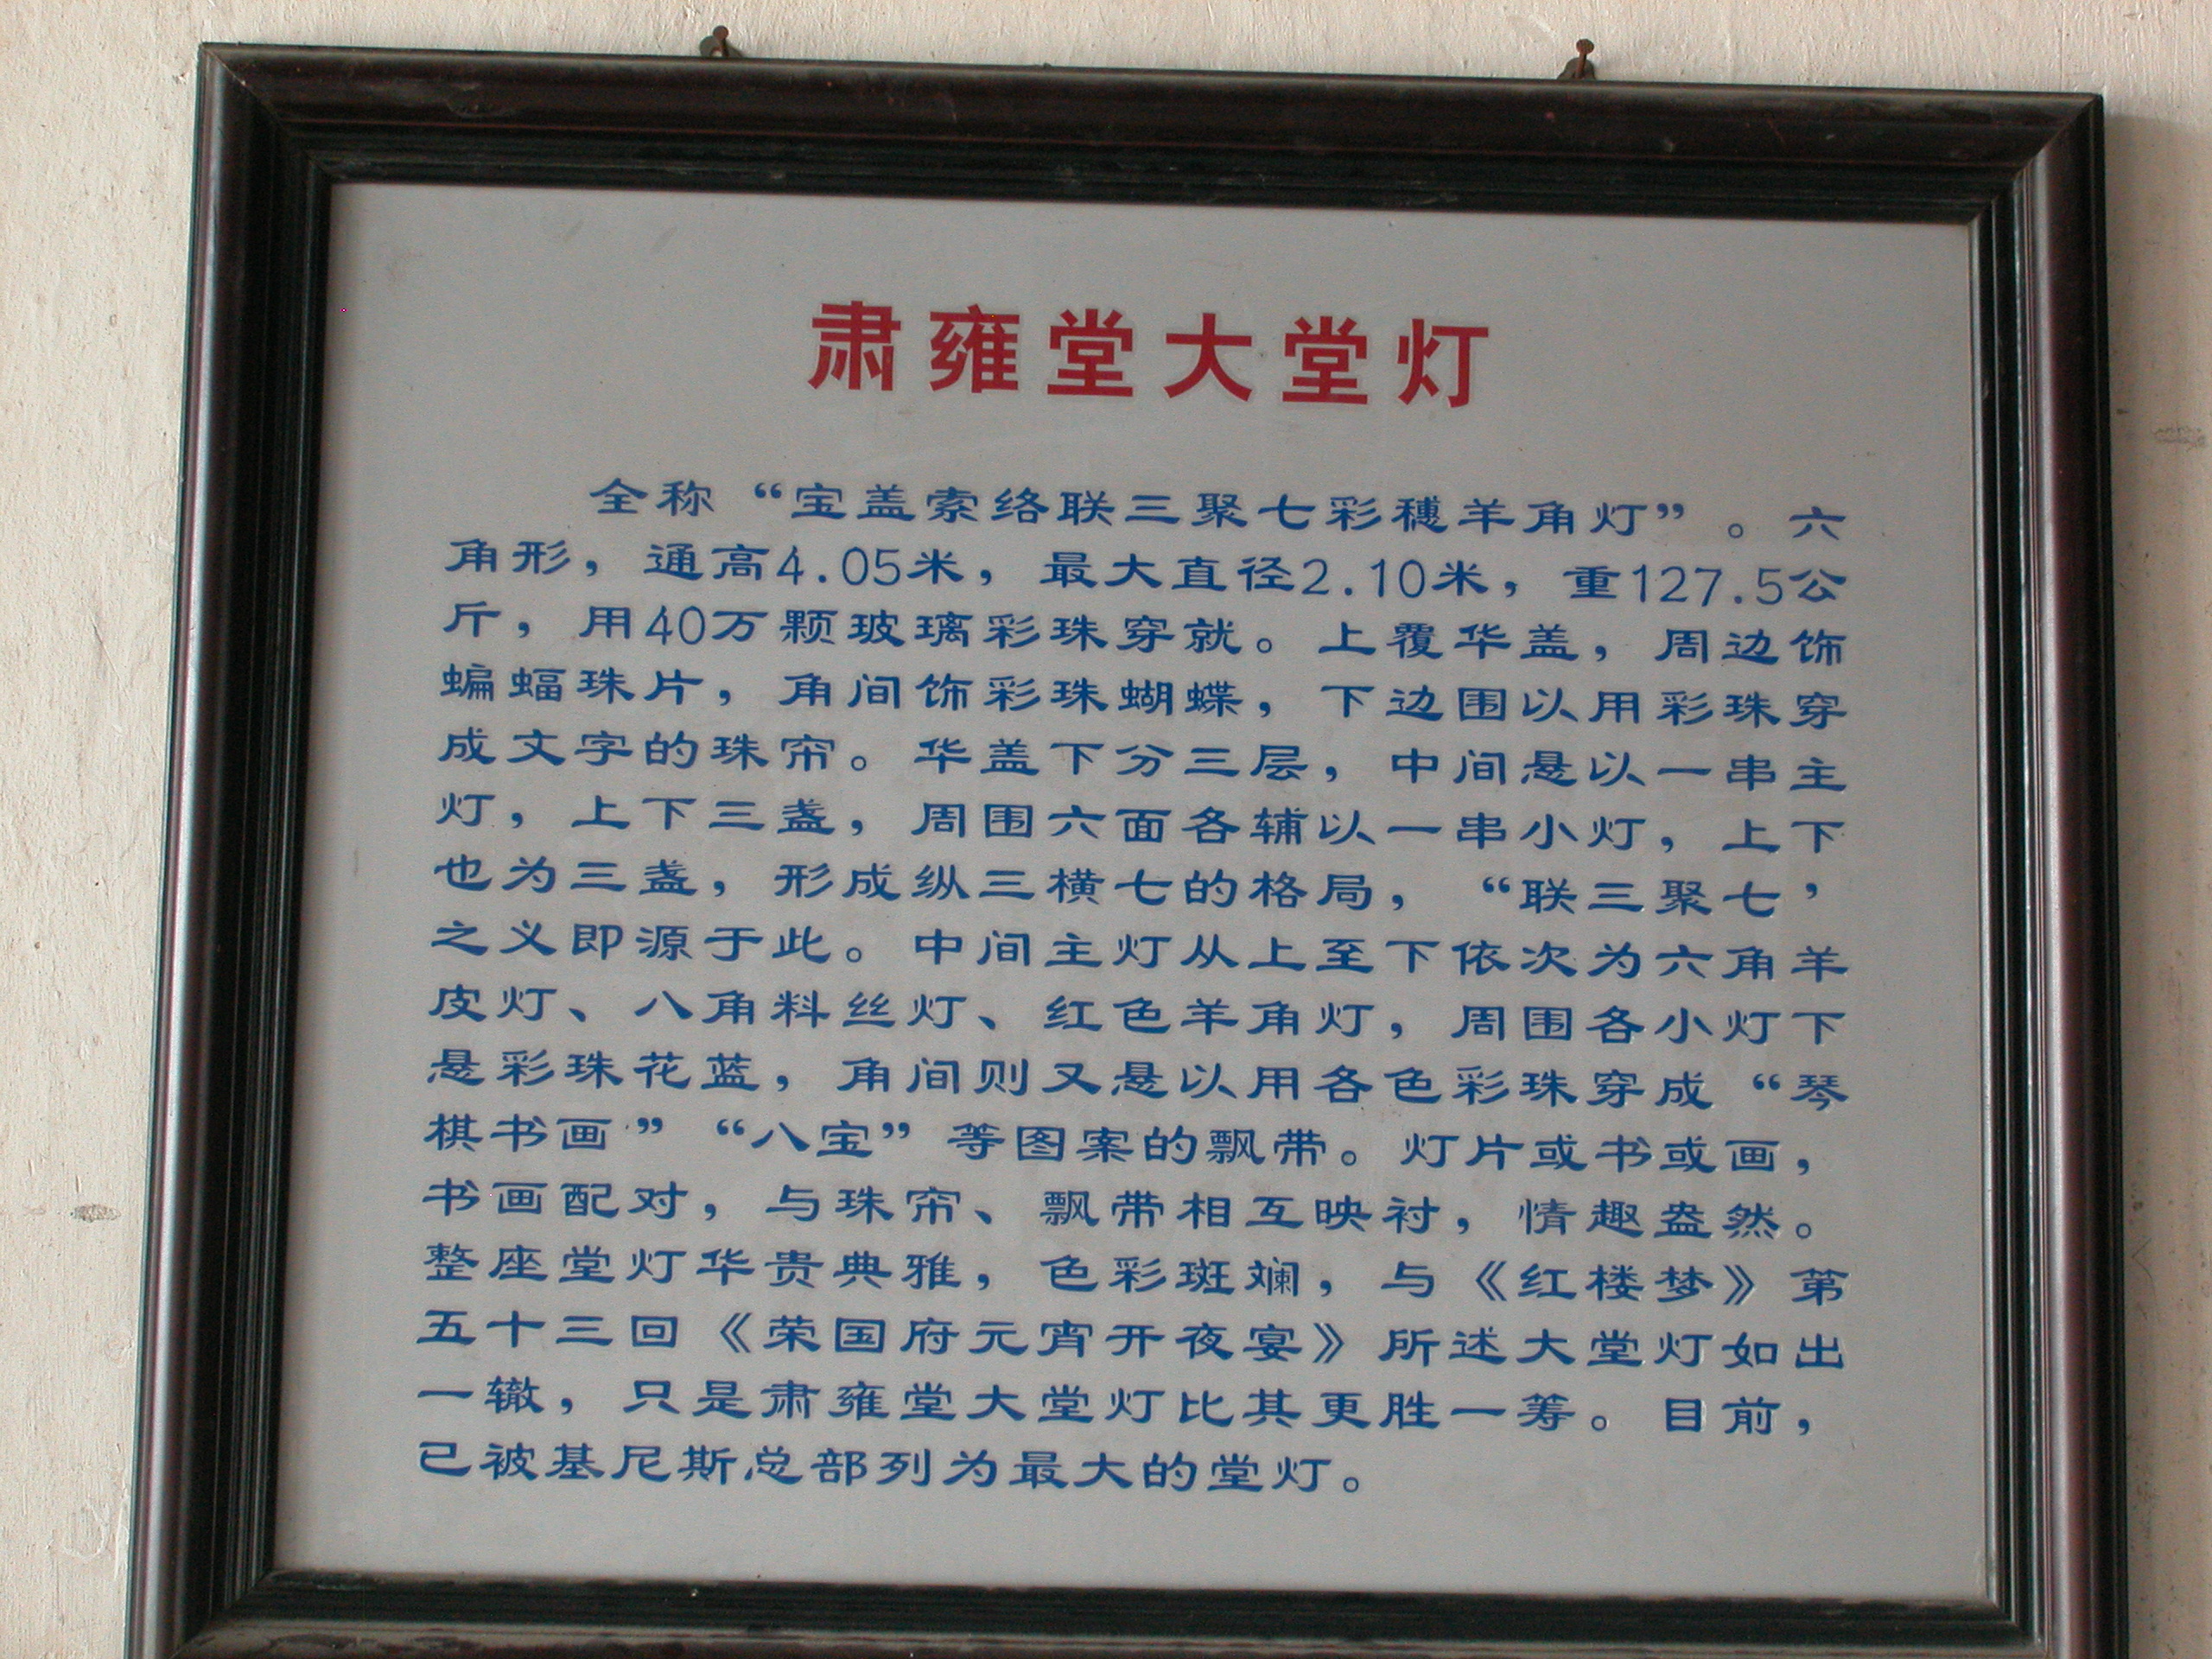 肃雍堂大堂灯
全称“宝盖索络联三聚七彩穗羊角灯”。六
角形，通高4.05米，最大直径2.10米，重127.5公
斤，用40万颗玻璃彩珠穿就。上覆华盖，周边饰
蝙蝠珠片，角间饰彩珠蝴蝶，下边围以用彩珠穿
成文字的珠帘。华盖下分三层，中间悬以一串主
灯，上下三盏，周围六面各辅以一串小灯，上下
也为三盏，形成纵三横七的格局，“联三聚七’
之义即源于此。中间主灯从上至下依次为六角羊
皮灯、八角料丝灯、红色羊角灯，周围各小灯下
悬彩珠花蓝，角间则又悬以用各色彩珠穿成“琴
棋书画”“八宝”等图案的飘带。灯片或书或画，
书画配对，与珠帘、飘带相互映衬，情趣盎然。
整座堂灯华贵典雅，色彩斑斓，与《红楼梦》第
五十三回《荣国府元宵开夜宴》所述大堂灯如出
一辙，只是肃雍堂大堂灯比其更胜一筹。目前，
已被基尼斯总部列为最大的堂灯。